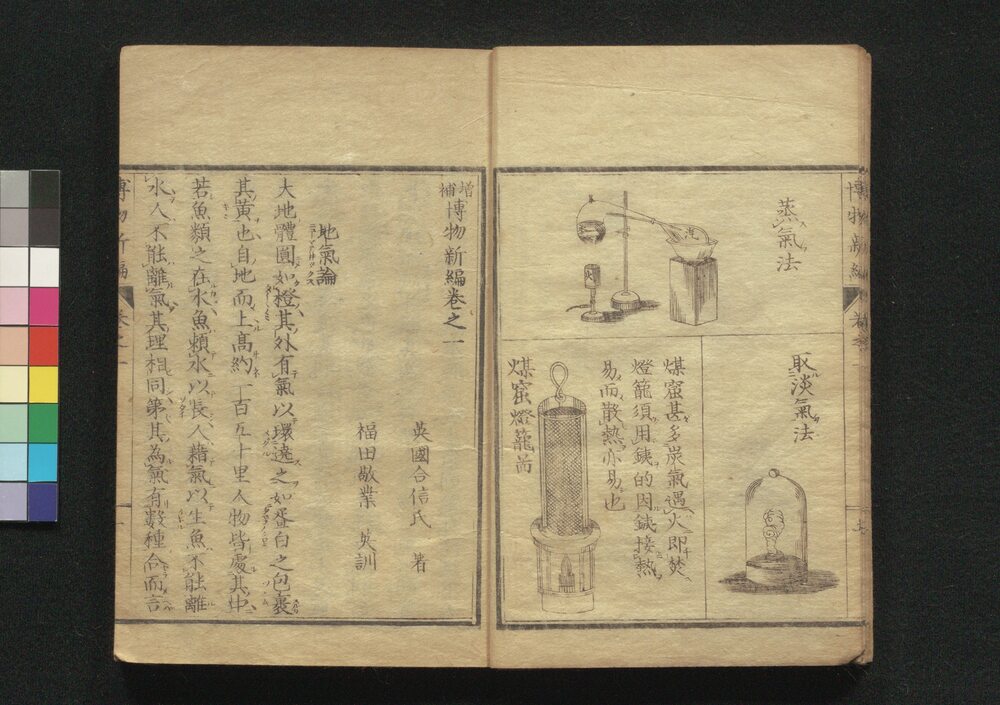 蒸氣法
取淡氣法
煤窰甚多炭氣遇火即焚
燈籠須用鐵的因鐵接熱
易而散熱亦易也
煤窰燈籠菊
博物新編
增補博物新編卷之一
英國合信氏 著
福田敬業 㸃訓
地氣論
大地體圓如橙其外有氣以環遶之如蛋白之包裹
其黃也自地而上高約一百五十里人物皆處其中
若魚類之在水魚頼水以長人藉氣以生魚不能離
水人不能離氣其理相同第其為氣有數種合而言
博物新編